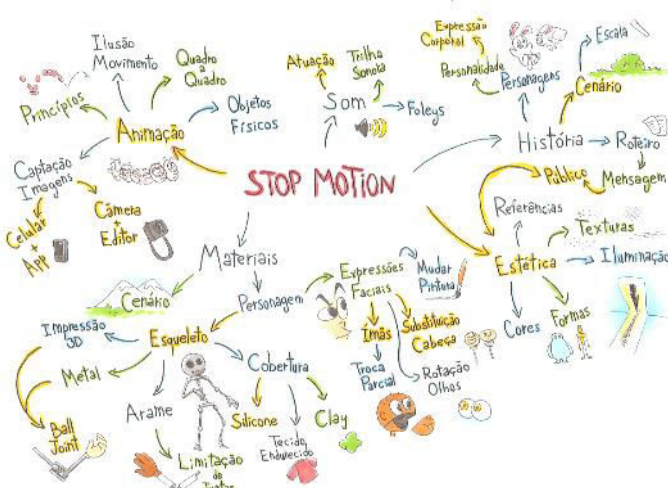 STOP MOTION
Animação
Princípios
Ilusão
Movimento
Quadro
a
Quadro
Objetos
Físicos
Captação
Imagens
Celular
+
App
Câmera
+
Editor
Som
Atuação
Trilha
Sonora
Foleys
História
Personagens
Personalidade
Expressão
Corporal
Cenário
Escala
Roteiro
Mensagem
Público
Estética
Referências
Texturas
Iluminação
Formas
Cores
Materiais
Cenário
Personagem
Expressões
Faciais
Mudar
Pintura
Substituição
Cabeça
Rotação
Olhos
Ímãs
Troca
Parcial
Esqueleto
Impressão
3D
Metal
Ball
Joint
Arame
Limitação
de
Cobertura
Silicone
Tecido
Endurecido
Clay